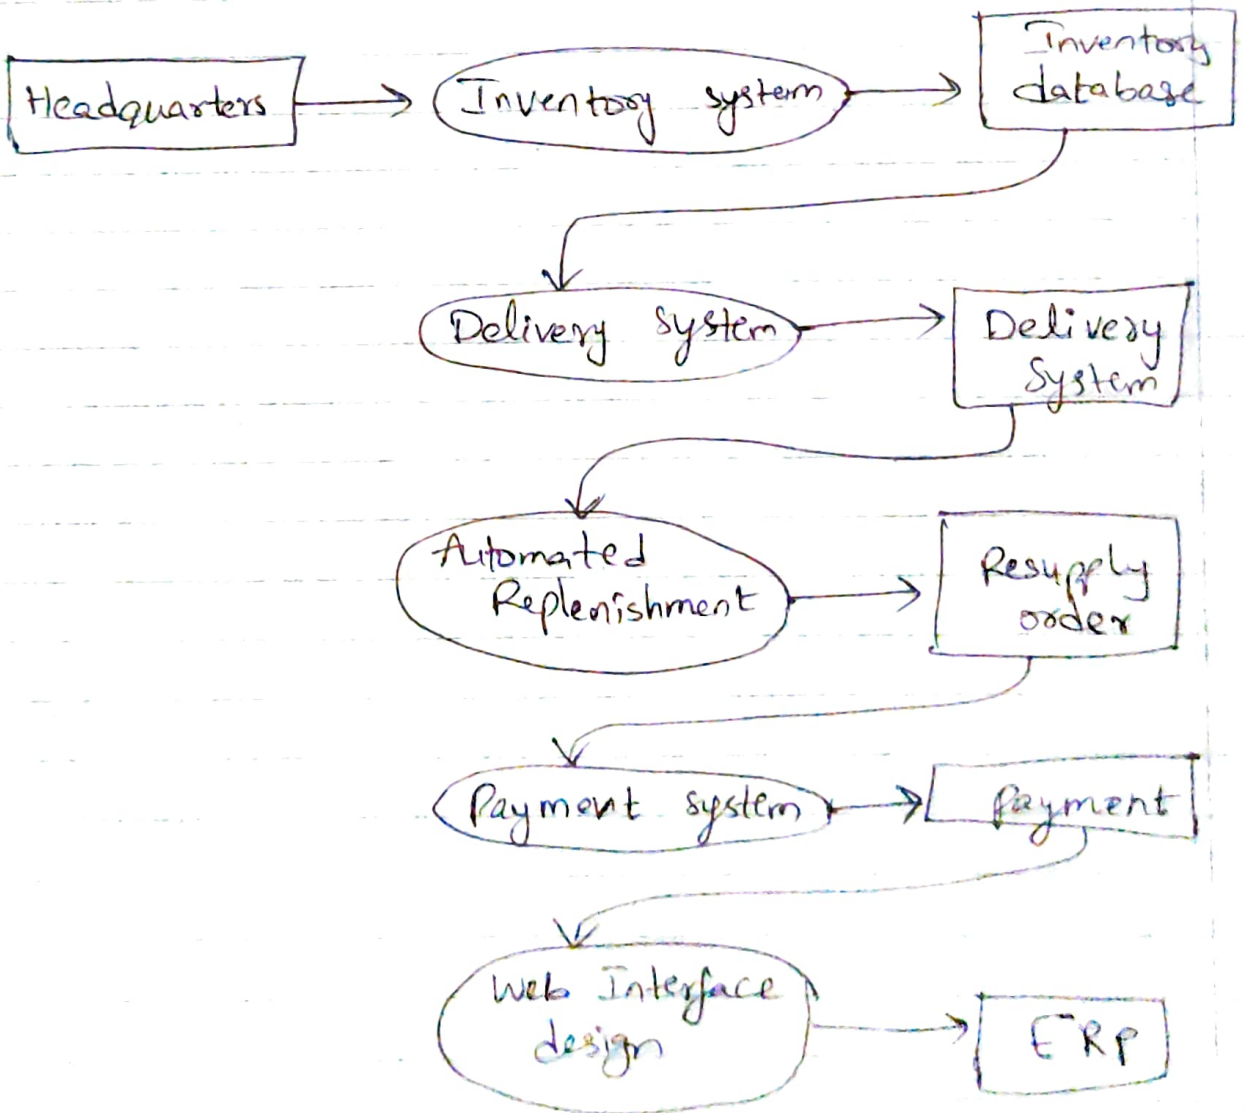 Headquarters
Inventory system
Inventory
database
Delivery system
Delivery
System
Automated
Replenishment
Resupply
order
Payment system
Payment
Web Interface
design
ERP